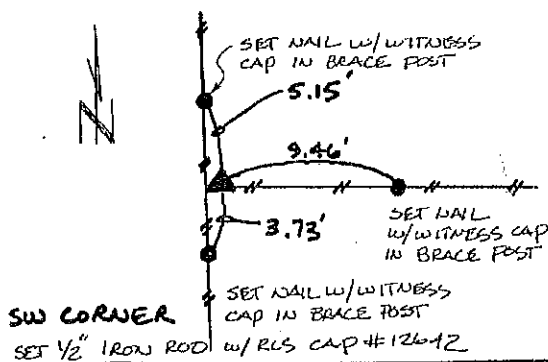 SET NAIL W/WITNESS
CAP IN BRACE POST
5.15'
N
9.46'
3.73'
SET NAIL
W/WITNESS CAP
IN BRACE POST
SW CORNER
SET NAIL W/WITNESS
CAP IN BRACE POST
SET 1/2" IRON ROD W/ RLS CAP #12642